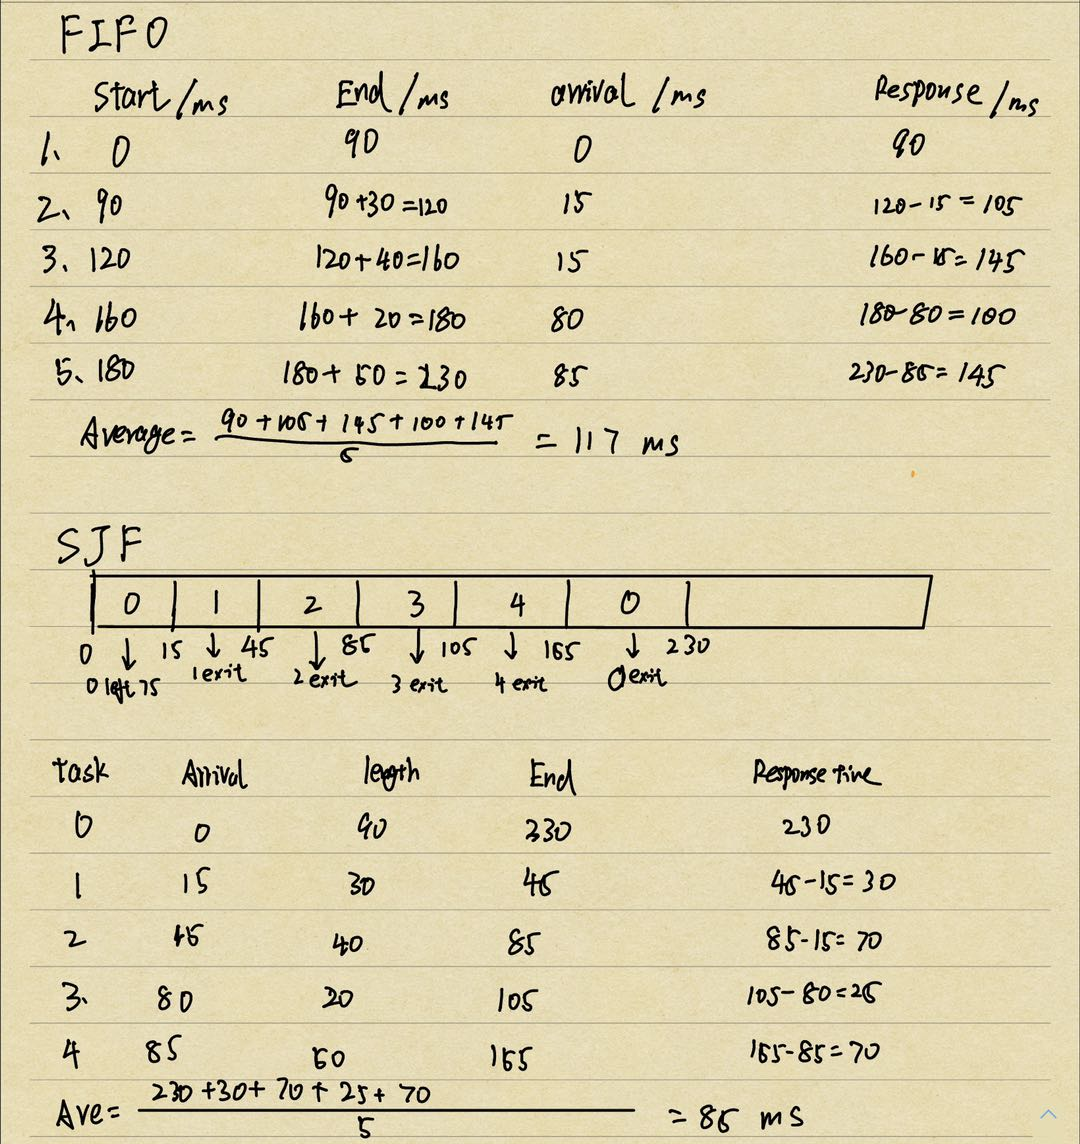 FIFO
Start/ms End/ms arrival /ms Response/ms
1、 0 90 0 90
2、 90 90+30=120 15 120-15=105
3、 120 120+40=160 15 160-15=145
4、 160 160+ 20=180 80 180-80=100
5、 180 180+50=230 85 230-85=145
Average= 90+105+145+100+145
5
= 117 ms
SJF
0 1 2 3 4 0
0 15 45 85 105 155 230
0 left 75 1 exit 2 exit 3 exit 4 exit 0 exit
Task Arrival length End Response time
0 0 90 230 230
1 15 30 45 45-15=30
2 15 40 85 85-15=70
3. 80 20 105 105-80=25
4 85 50 155 155-85=70
Ave= 230+30+70+25+70
5
= 85 ms